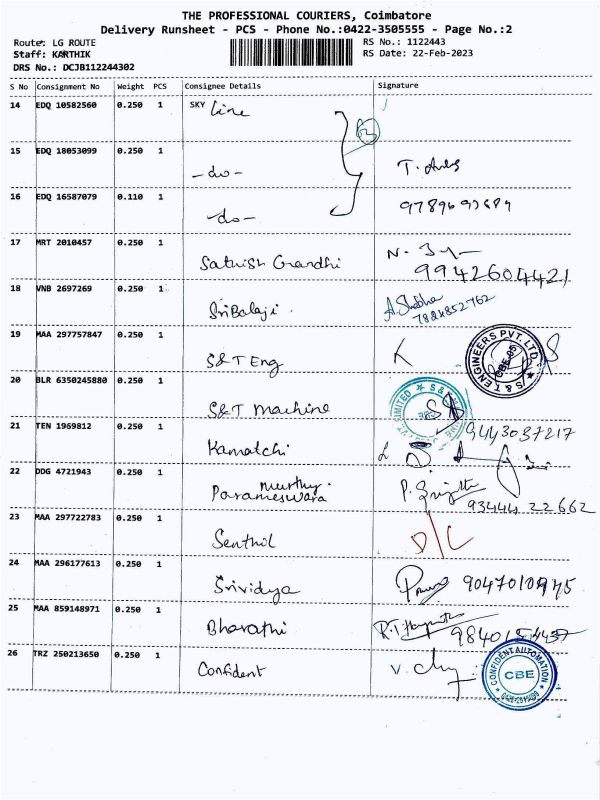 THE PROFESSIONAL COURIERS, Coimbatore
Delivery Runsheet - PCS - Phone No.:0422-3505555 - Page No.:2
Route: LG ROUTE
RS No.: 1122443
Staff: KARTHIK
RS Date: 22-Feb-2023
DRS No.: DCJB112244302
S No Consignment No Weight PCS Consignee Details Signature
14 EDQ 10582560 0.250 1 SKY Line
3
15 EDQ 18053099 0.250 1
-do- T.
16 EDQ 16587079 0.110 1
-do- 9789693689
17 MRT 2010457 0.250 1
Sathish Gandhi N.
9942604421
18 VNB 2697269 0.250 1
Sri Balaji. A. Shobha
7824852762
19 MAA 297757847 0.250 1
S&T Eng
S & T ENGINEERS PVT. LTD. CBE-05
20 BLR 6350245880 0.250 1
S&T Machine
21 TEN 1969812 0.250 1 9443037217
Kamatchi
22 DDG 4721943 0.250 1
Murthy.
Parameswara P.
93444 22662
23 MAA 297722783 0.250 1
Senthil D/C
24 MAA 296177613 0.250 1
Srividya 9047010975
25 MAA 859148971 0.250 1
Bharathi R.T.
26 TRZ 250213650 0.250 1
Confident V.
CONFIDENT AUTOMATION CBE